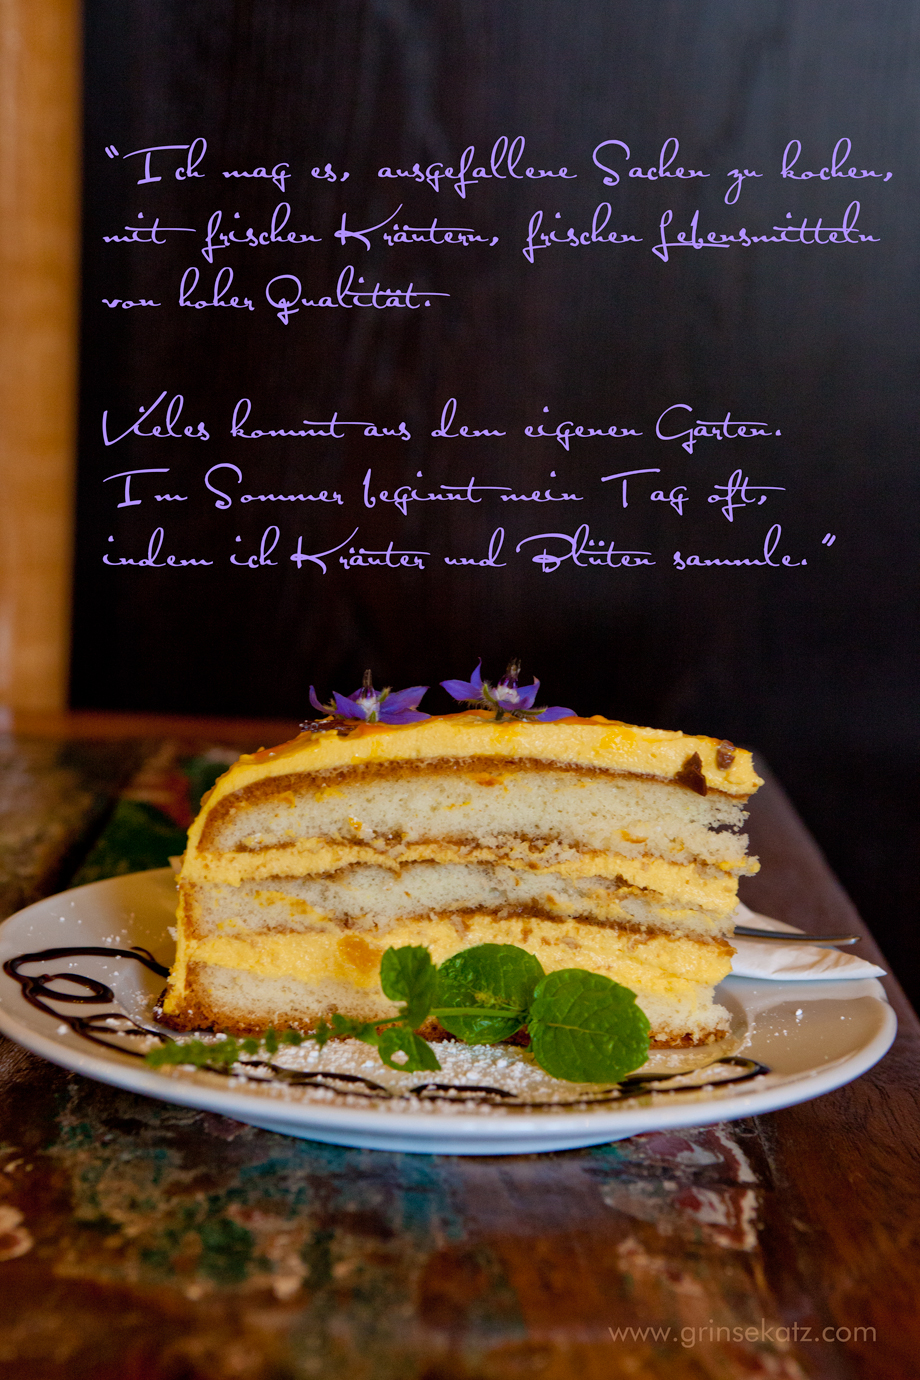 "Ich mag es, ausgefallene Sachen zu kochen,
mit frischen Kräutern, frischen Lebensmitteln
von hoher Qualität.
Vieles kommt aus dem eigenen Garten.
Im Sommer beginnt mein Tag oft,
indem ich Kräuter und Blüten sammle."
www.grinsekatz.com